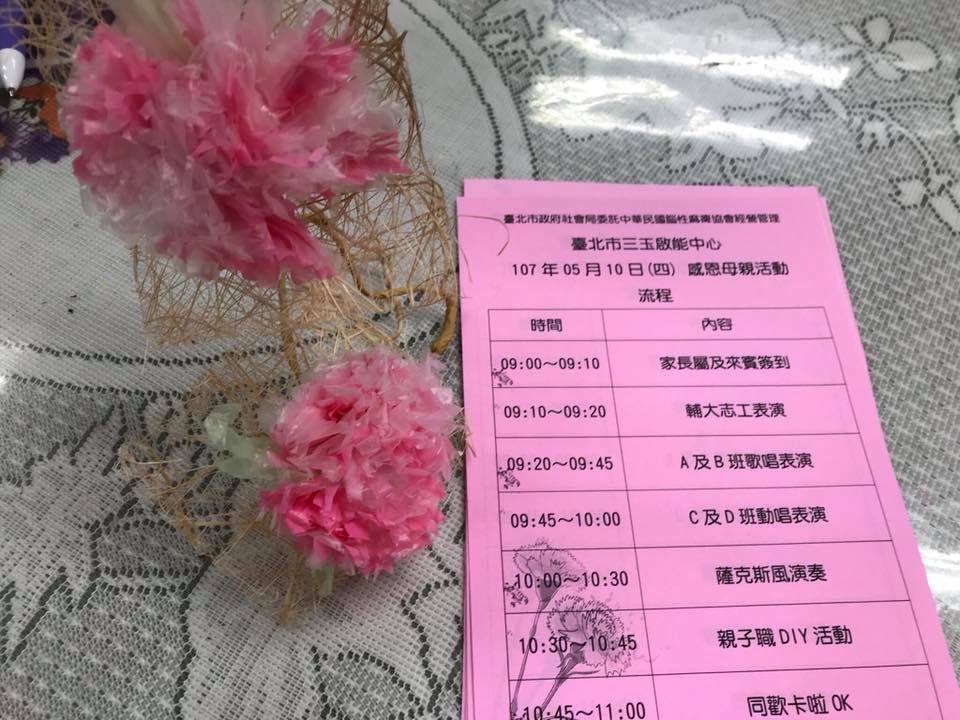 臺北市政府社會局委託中華民國腦性麻痺協會經營管理
臺北市三玉啟能中心
107 年 05 月 10 日(四) 感恩母親活動
流程
時間 內容
09:00～09:10 家長屬及來賓簽到
09:10～09:20 輔大志工表演
09:20～09:45 A 及 B 班歌唱表演
09:45～10:00 C 及 D 班動唱表演
10:00～10:30 薩克斯風演奏
10:30～10:45 親子職 DIY 活動
10:45～11:00 同歡卡啦 OK